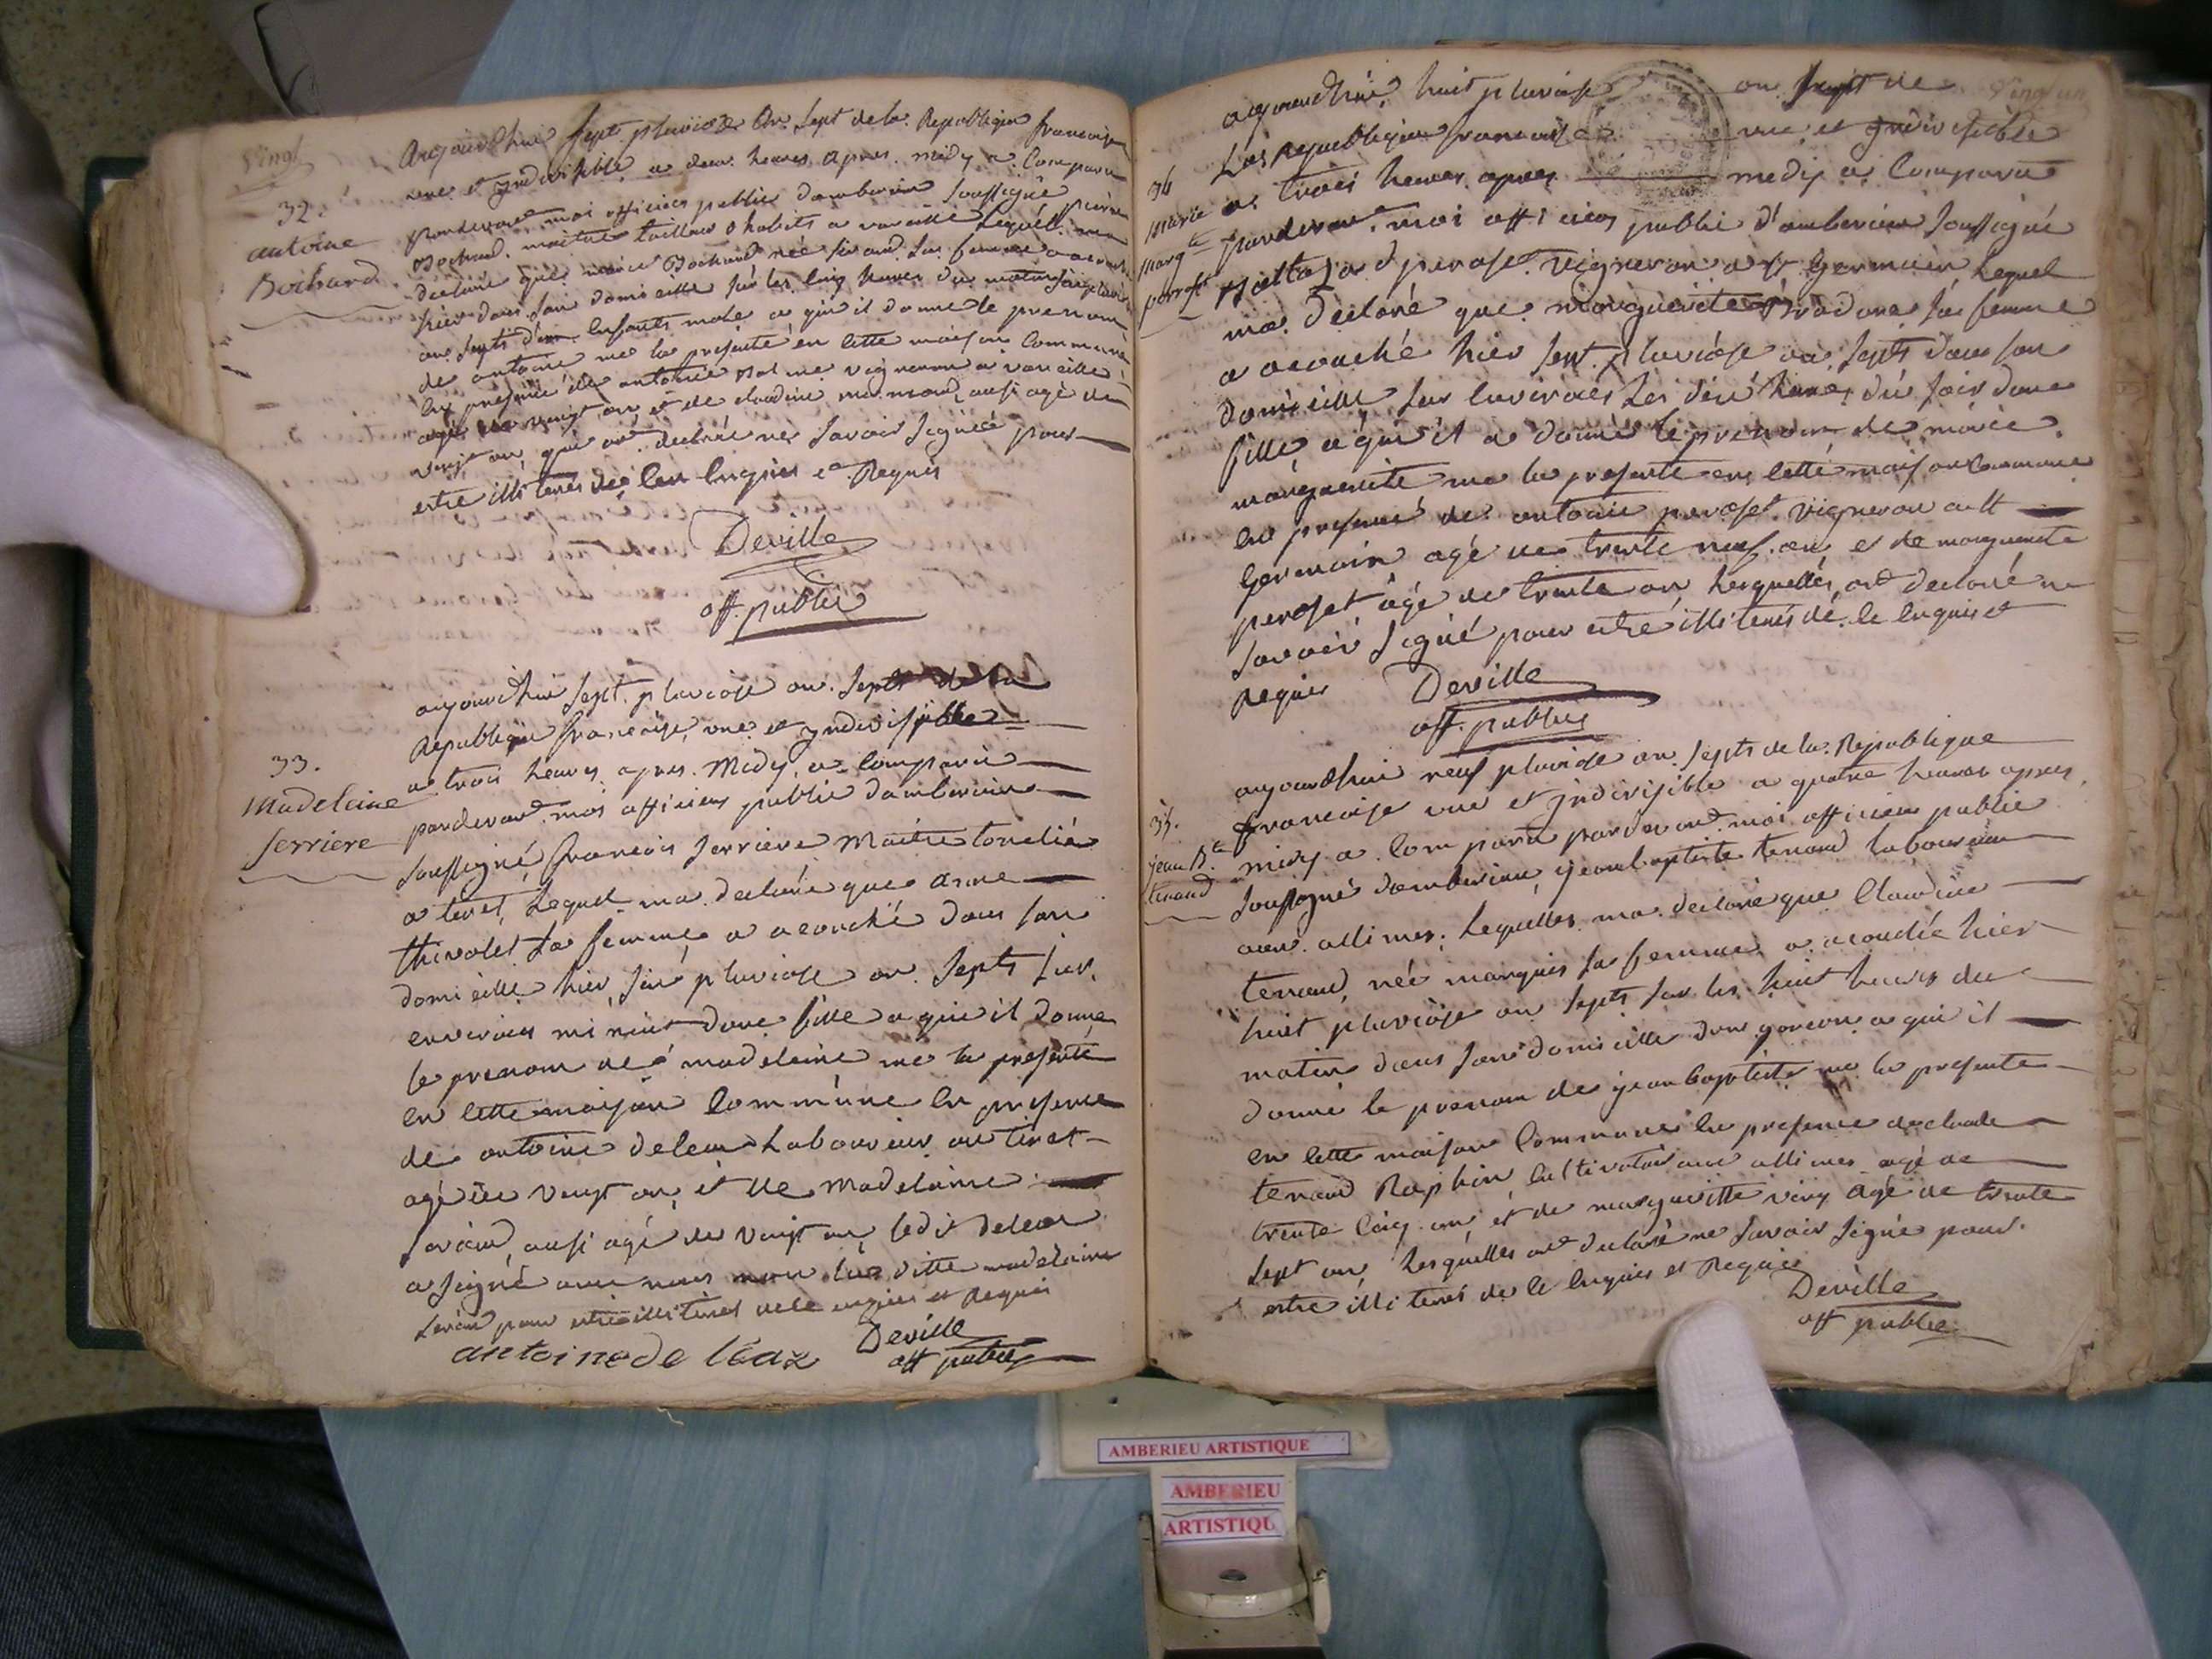 Vingt
32.
antoine
Bochard
Aujourdhui sept pluviose an sept de la Republique francaise
une et yndivisible a deux heures apres midy a Comparu
pardevant moi officier public damberieu soussigné pierre
Bochard maitre tailleur dhabits a vareille lequel ma
declaré que marie Bochard née sa femme a acouché
hier dans son domicille sur les cinq heures du matin six pluviose
an septs d'un Enfants male a qui il donne le prenom
de antoine me la presenté en cette maison Commune
En presence de antoine vigneron a vareille
agé de vingt an et de claudine aussi agé de
vingt an qui ont declaré ne savoir signée pour
estre illiterés de ceu Enquies et Requis
Deville
off. public
33.
Madeleine
serriere
aujourdhui sept pluviose an septs de la
Republique francaise une et yndivissible
a trois heures apres Midy a comparu
pardevant moi officier public damberieu
soussigné francois serriere Maitre tonelié
a tiret, Lequel ma declaré que anne
thivolet sa femme a acouché dans son
domicille hier six pluviose an septs sur
environs minuit dune fille a qui il donne
le prenom de madeleine me la presenté
en cette maison Commune En presence
de antoine deleaz Laboureur au tiret
agé de vingt an et de Madelaine
aussi agé de vingt an ledit deleaz
a signé avec nous non la ditte madelaine
pour estre illiteres de ce enquies et Requis
antoine de léaz Deville
off public
aujourdhui huit pluviose an sept de
La Republique francaise une et yndivisible
34
Marie
Marg.te
perroset
a trois heures apres midy a Comparu
pardevant moi officier public d'amberieu soussigné
peroset vigneron a st Germain Lequel
ma declaré que marguerite sa femme
a acouché hier sept pluviose an septs dans son
domicille sur environs les dix heures du soir dune
fille a qui il a donné le prenom de marie
marguerite me la presenté en cette maison Commune
En presence de antoine peroset vigneron a st
Germain agé de trente neuf an et de marguerite
peroset agé de trente an Lesquelles ont declaré ne
savoir signé pour estre illiterés de ce Enquis et
Requis Deville
off. public
35.
jean B.te
tenand
aujourdhui neuf pluviose an septs de la Republique
francaise une et yndivisible a quatre heures apres
midy a Comparu pardevant moi officier public
soussigné damberieu jeanbaptiste tenand laboureur
aux allimes, Lequelles ma declaré que Claudine
tenand, née marquis sa femme a acouchée hier
huit pluviose an septs sur les huit heures du
matin dans son domicille dun garcon a qui il
donné le prenom de jeanbaptiste me la presenté
en cette maison Commune En presence de claude
tenand Raphin Cultivateur aux allimes agé de
trente Cinq an et de marguerite agé de trente
sept an Lesquelles ont declaré ne savoir signée pour
estre illiterés de ce Enquies et Requis
Deville
off public
AMBERIEU ARTISTIQUE
AMBERIEU
ARTISTIQU